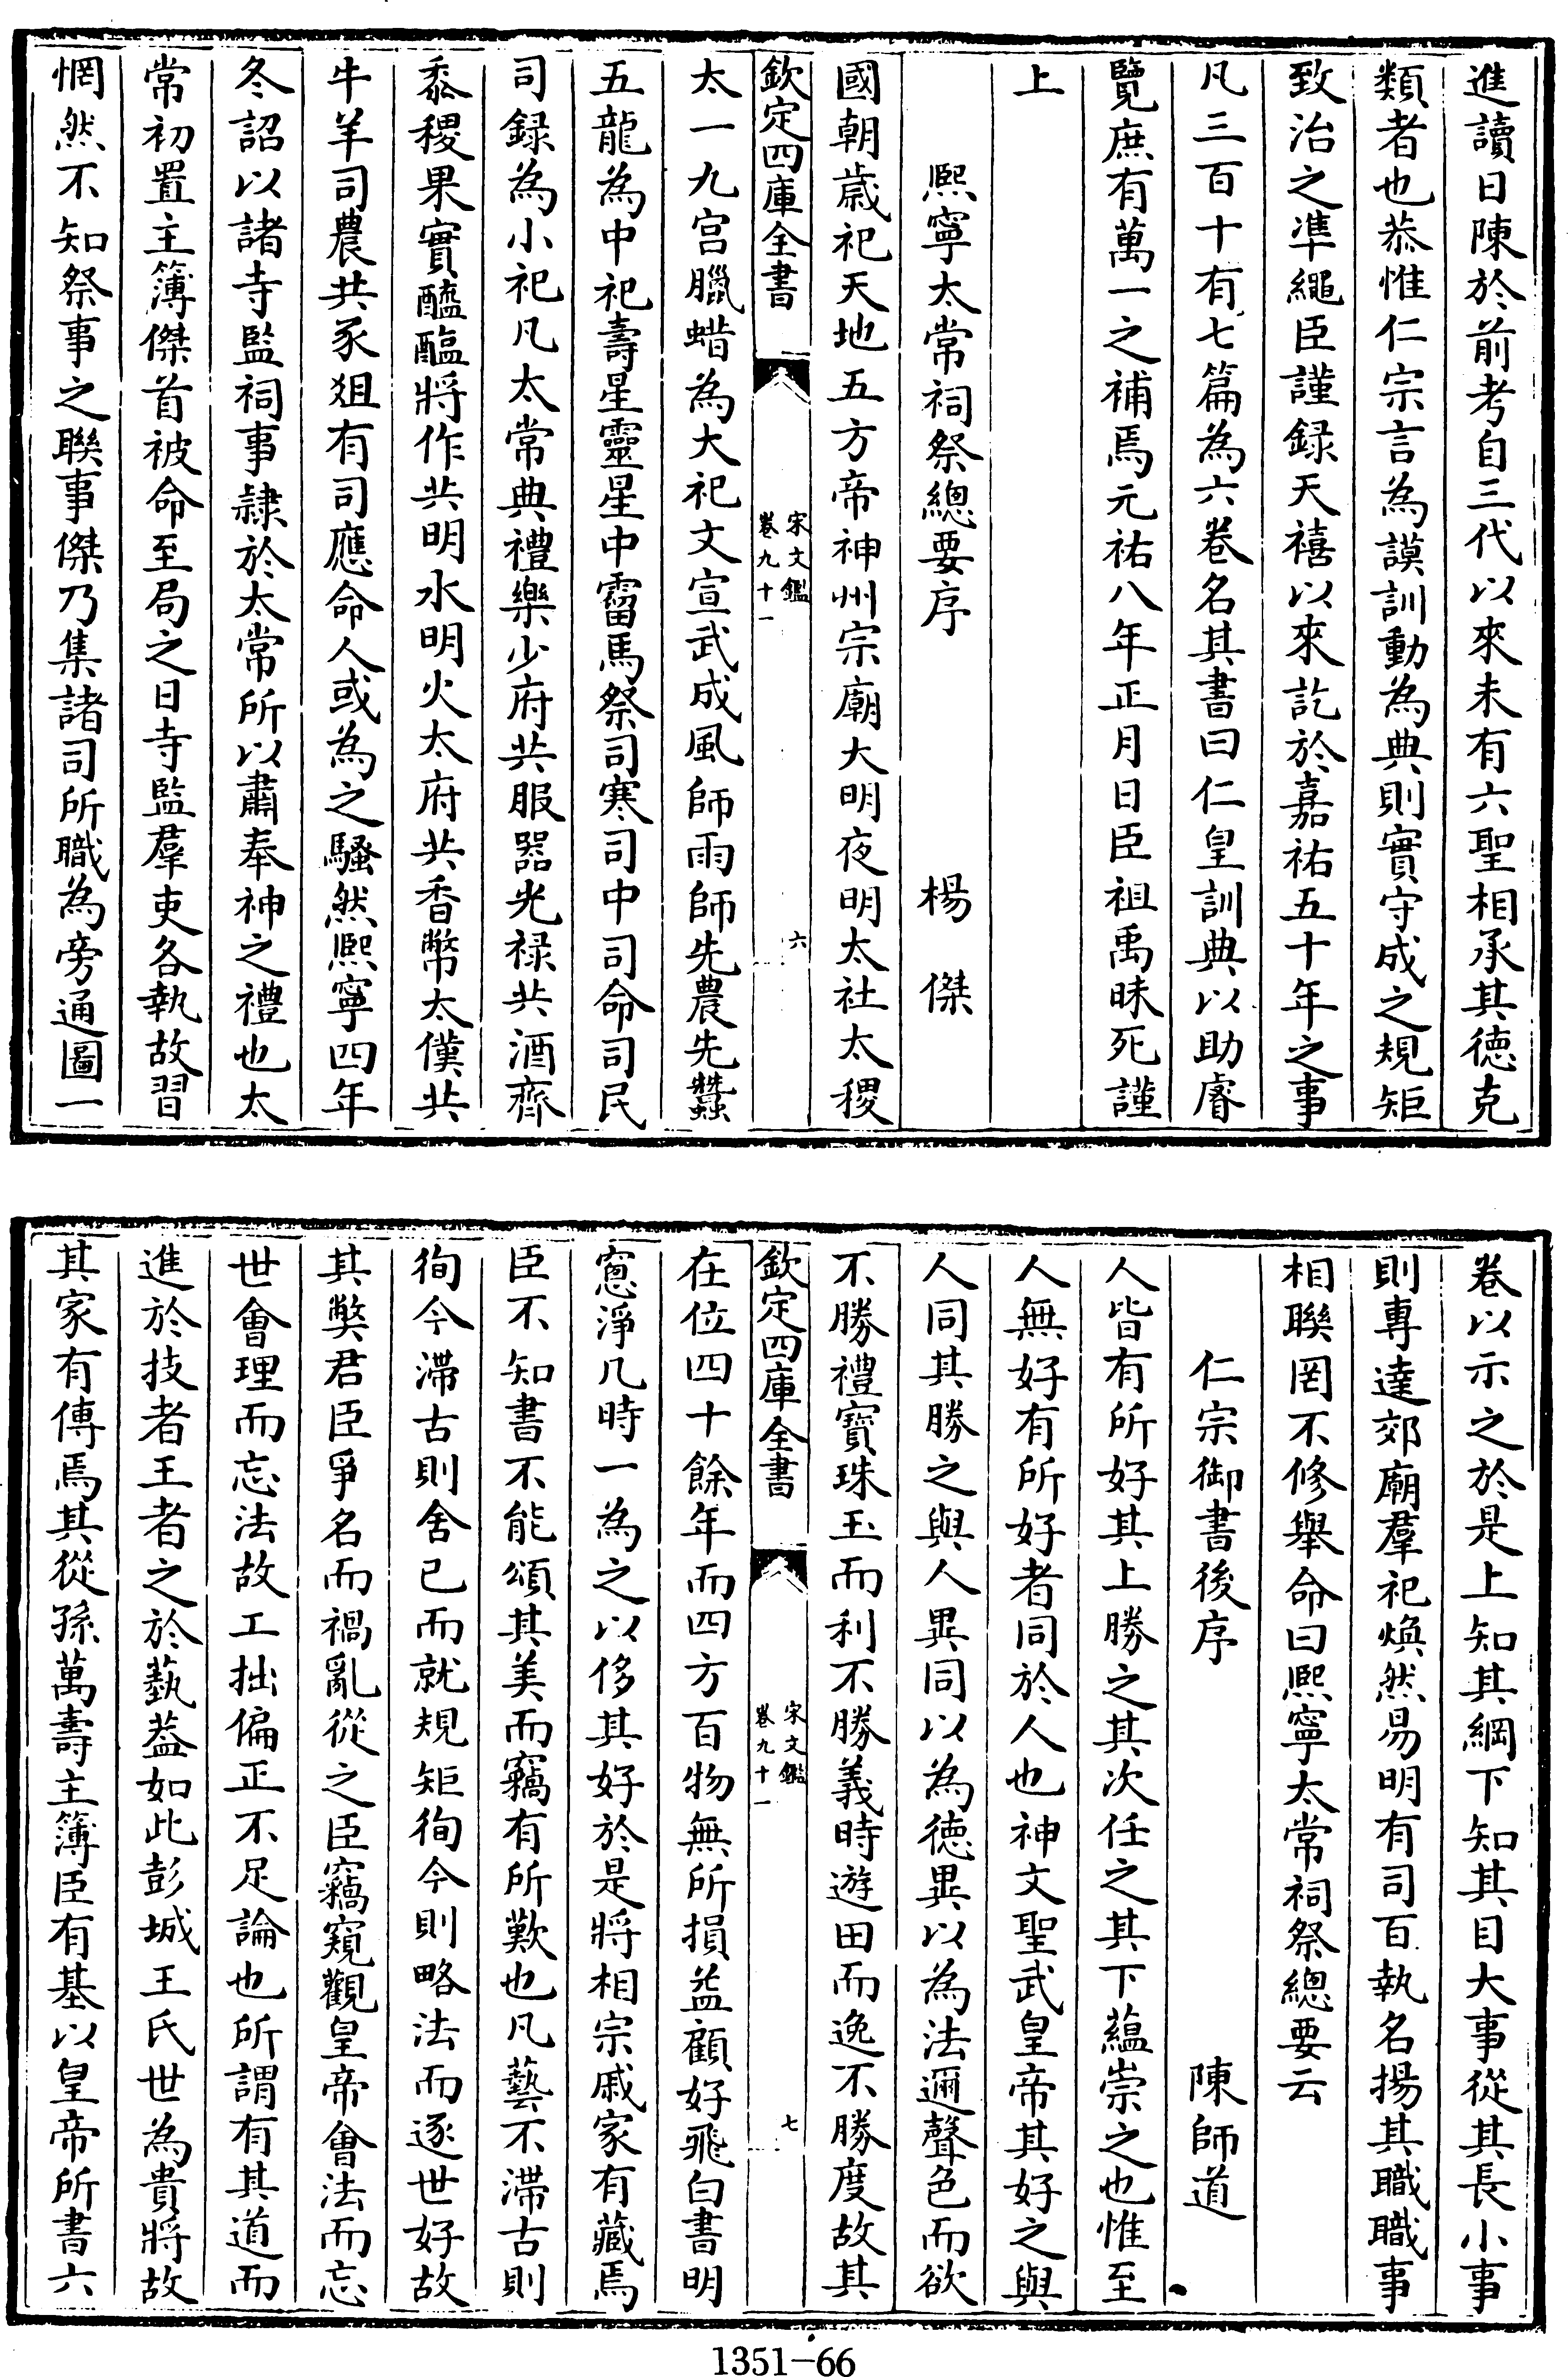 進讀日陳於前考自三代以來未有六聖相承其徳克
類者也恭惟仁宗言為謨訓動為典則實守成之規矩
致治之凖繩臣謹録天禧以來訖於嘉祐五十年之事
凡三百十有七篇為六卷名其書曰仁皇訓典以助睿
覽庶有萬一之補焉元祐八年正月日臣祖禹昧死謹
上
熙寧太常祠祭總要序 楊傑
國朝歲祀天地五方帝神州宗廟大明夜明太社太稷
欽定四庫全書 宋文鑑 卷九十一 六
太一九宫臘蜡為大祀文宣武成風師雨師先農先蠶
五龍為中祀壽星靈星中霤馬祭司寒司中司命司民
司録為小祀凡太常典禮樂少府共服器光禄共酒齊
黍稷果實醯醢將作共明水明火太府共香幣太僕共
牛羊司農共豕俎有司應命人或為之騷然熙寧四年
冬詔以諸寺監祠事隷於太常所以肅奉神之禮也太
常初置主簿傑首被命至局之日寺監羣吏各執故習
惘然不知祭事之聯事傑乃集諸司所職為旁通圖一
卷以示之於是上知其綱下知其目大事從其長小事
則專達郊廟羣祀煥然易明有司百執名揚其職職事
相聯罔不修舉命曰熙寧太常祠祭總要云
仁宗御書後序 陳師道
人皆有所好其上勝之其次任之其下藴崇之也惟至
人無好有所好者同於人也神文聖武皇帝其好之與
人同其勝之與人異同以為徳異以為法邇聲色而欲
不勝禮寳珠玉而利不勝義時遊田而逸不勝度故其
欽定四庫全書 宋文鑑 卷九十一 七
在位四十餘年而四方百物無所損益顧好飛白書明
窻淨几時一為之以侈其好於是將相宗戚家有藏焉
臣不知書不能頌其美而竊有所歎也凡藝不滯古則
徇今滯古則舍已而就規矩徇今則略法而逐世好故
其弊君臣爭名而禍亂從之臣竊窺觀皇帝會法而忘
世會理而忘法故工拙偏正不足論也所謂有其道而
進於技者王者之於藝葢如此彭城王氏世為貴將故
其家有傳焉其從孫萬壽主簿臣有基以皇帝所書六
1351-66